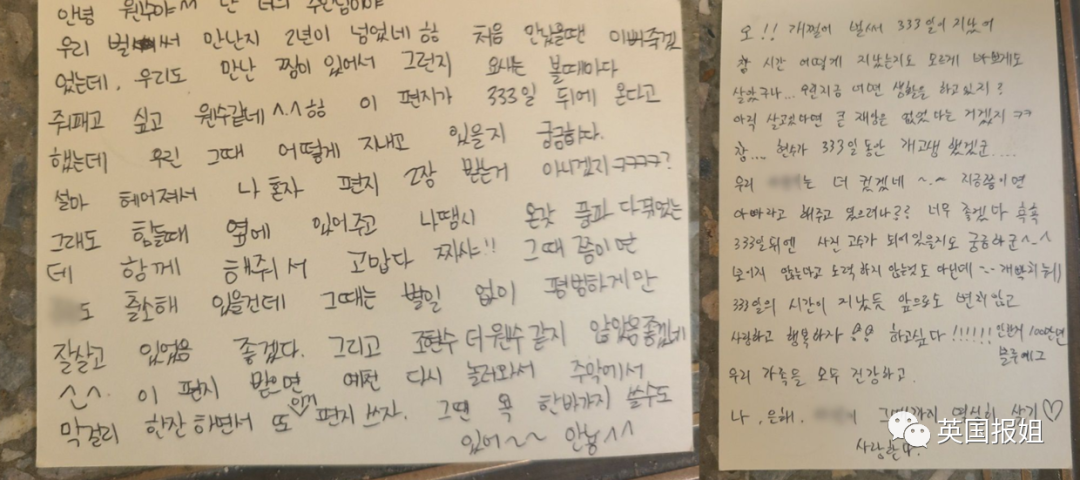 안녕 원수야~ 난 너의 주인님이야
우리 벌써 만난지 2년이 넘었네 ㅎㅎ 처음 만났을땐 이뻐죽겠
었는데, 우리도 만난 찜이 있어서 그런지 요새는 볼때마다
줘패고 싶고 원수같네^.^ㅎㅎ 이 편지가 333일 뒤에 온다고
했는데 우린 그때 어떻게 지내고 있을지 궁금하다.
설마 헤어져서 나 혼자 편지 2장 받는거 아니겠지ㅋㅋㅋㅋ?
그래도 힘들때 옆에 있어주고 나땜시 온갖 풍파 다 겪었는
데 함께 해줘서 고맙다 찌샤!! 그때 쯤이면
도 출소해 있을건데 그때는 별일 없이 평범하게만
잘살고 있었음 좋겠다. 그리고 조현수 더 원수 같지 않았음 좋겠네
^.^. 이 편지 받으면 예전 다시 놀러와서 주막에서
막걸리 한잔 하면서 또 편지 쓰자. 그땐 욕 한바가지 쓸수도
있어~~ 안뇽^^
오!! 벌써 333일이 지났어
참 시간 어떻게 지났는지도 모르게 바쁘게도
살았구나... 지금 어떤 생활을 하고있지?
아직 살고있다면 큰 재앙은 없었다는 거겠지 ㅋㅋ
참.... 현수가 333일동안 개고생 했겠군.....
우리 는 더 컸겠네 ~.~ 지금쯤이면
아빠라고 해주고 있으려나?? 너무 좋겠다 흑흑
333일뒤엔 사진 고수가 되어있을지도 궁금하군^-^
보이지 않는다고 노력하지 않는것도 아닌데 -.-
333일의 시간이 지났듯 앞으로도 변치않고
사랑하고 행복하자 하고싶다!!!!!!
우리 가족들 모두 건강하고.
나, 은해, 살기♡
사랑한다.
英国报姐